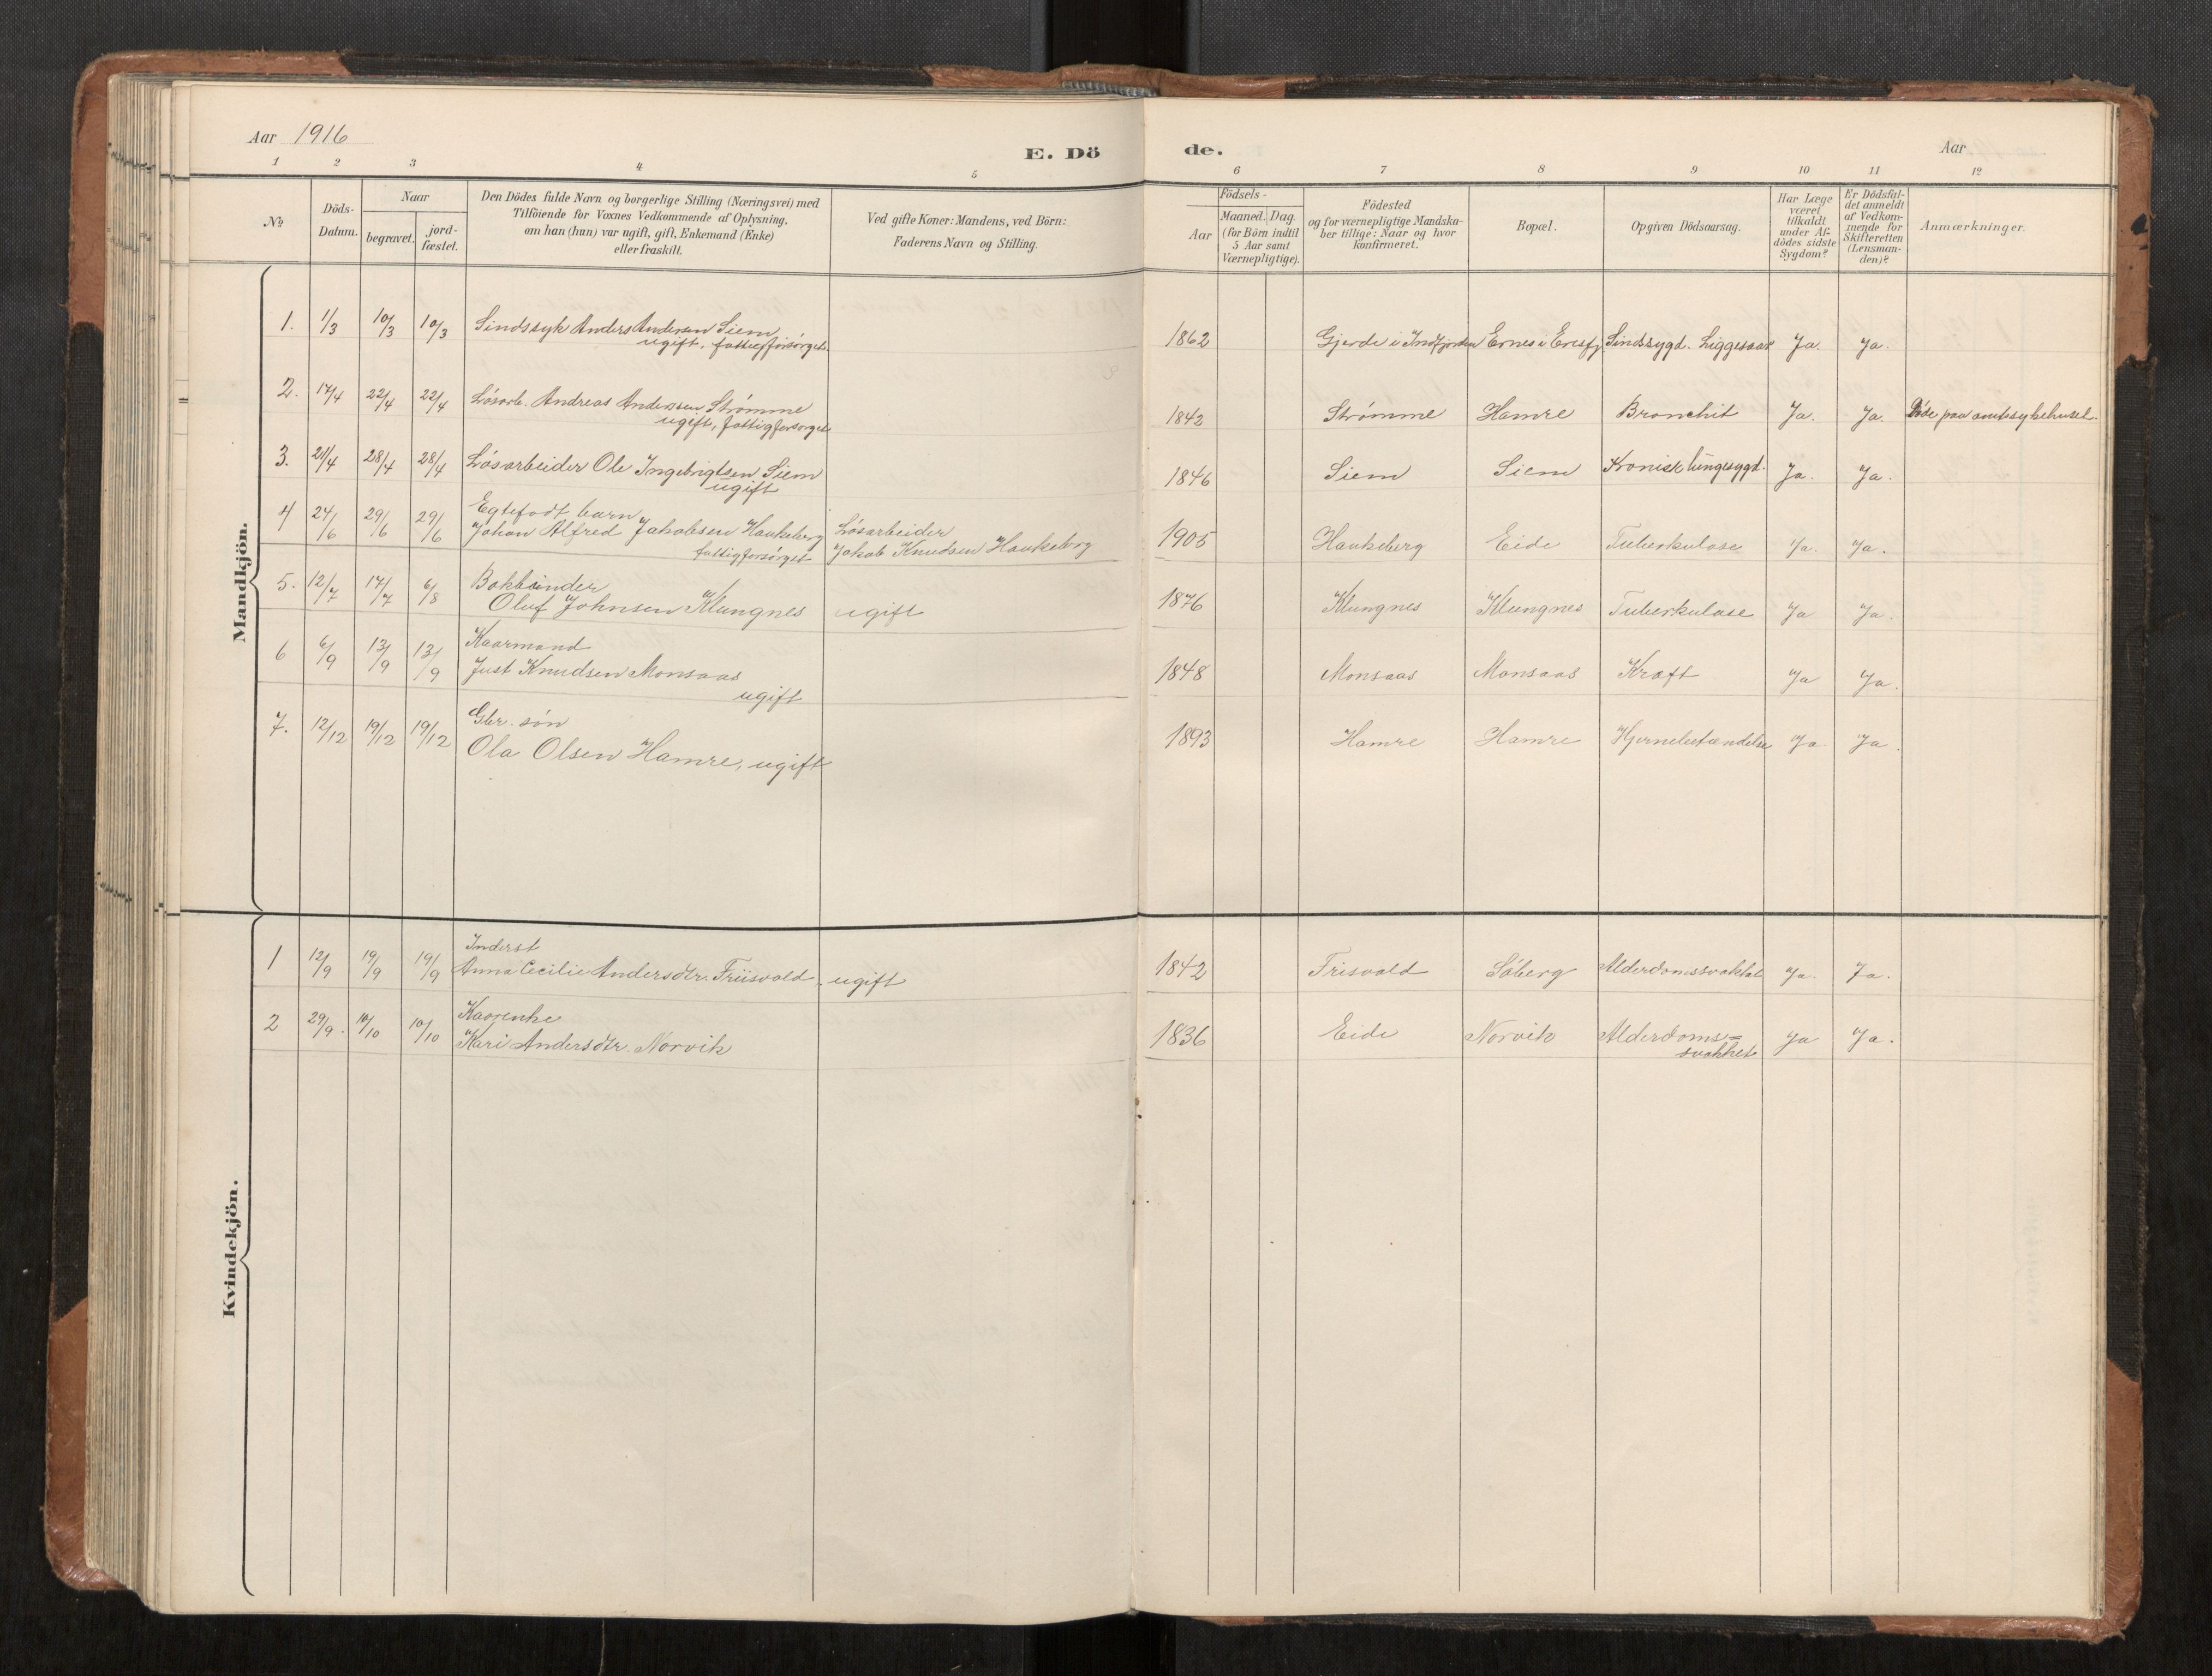 Aar 1916
E. Dö
de.
Aar
1 2 3 4 5 6 7 8 9 10 11 12
No
Döds-
Datum.
Naar
begravet.
jord-
fæstet.
Den Dödes fulde Navn og borgerlige Stilling (Næringsvei) med
Tilföiende for Voxnes Vedkommende af Oplysning,
om han (hun) var ugift, gift, Enkemand (Enke)
eller fraskilt.
Ved gifte Koner: Mandens, ved Börn:
Faderens Navn og Stilling.
Födsels-
Aar
Maaned. Dag.
(for Börn indtil
5 Aar samt
Værnepligtige).
Födested
og for værnepligtige Mandska-
ber tillige: Naar og hvor
konfirmeret.
Bopæl.
Opgiven Dödsaarsag.
Har Læge
været
tilkaldt
under Af-
dödes sidste
Sygdom?
Er Dödsfal-
det anmeldt
af Vedkom-
mende for
Skifteretten
(Lensman-
den)?
Anmærkninger.
Mandkjön.
1. 1/3 10/3 10/3 Sindssyk Anders Andersen Siem
ugift, fattigforsörget.
1862 Gjerde i Indfjorden Ernes i Eresfj. Sindssygd. Liggesaar Ja. Ja.
2. 17/4 22/4 22/4 Lösarb. Andreas Anderssen Strømme
ugift, fattigforsörget
1842 Strømme Hamre Bronchit Ja. Ja. Döde paa amtssykehuset.
3. 21/4 28/4 28/4 Lösarbeider Ole Ingebrigtsen Siem
ugift
1846 Siem Siem Kronisk lungesygd. Ja. Ja.
4 24/6 29/6 29/6 Egtefödt barn
Johan Alfred Jakobsen Haukeberg
fattigforsörget
Lösarbeider
Jakob Knudsen Haukeberg
1905 Haukeberg Eide Tuberkulose Ja. Ja.
5. 12/7 17/7 6/8 Bokbinder
Oluf Johnsen Klungnes ugift
1876 Klungnes Klungnes Tuberkulose Ja Ja.
6 6/9 13/9 13/9 Kaarmand
Just Knudsen Monsaas
ugift
1848 Monsaas Monsaas Kræft Ja Ja.
7. 12/12 19/12 19/12 Gbr. søn
Ola Olsen Hamre, ugift
1893 Hamre Hamre Hjernebetændelse Ja Ja.
Kvindekjön.
1 12/9 19/9 19/9 Inderst
Anna Cecilie Andersdtr. Friisvold, ugift
1842 Frisvold Söberg Alderdomssvakhet Ja. Ja.
2 29/9. 10/10 10/10 Kaarenke
Kari Andersdtr. Norvik
1836 Eide Norvik Alderdoms=
svakhet Ja Ja.